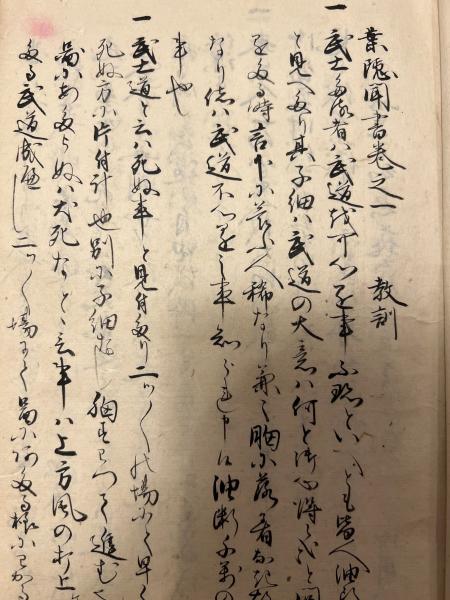 葉隠聞書巻之一　教訓
一 武士たる者ハ武道を可心懸事不珍といへとも皆人油断
と見へたり其子細ハ武道の大意ハ何と御心得候哉と問
たる時言下に答ふ人稀なり兼々胸に落着なき
なり偖ハ武道不心懸之事知られ申候油断千万の
事也
一 武士道と云ハ死ぬ事と見付たり二ツ〱の場にて早く
死ぬ方に片付計也別に子細なし胸すわつて進む
図にあたらぬハ犬死なとゝ云事ハ上方風の打上
たる武道成へし二ツ〱場にて図にあたる様にわかる